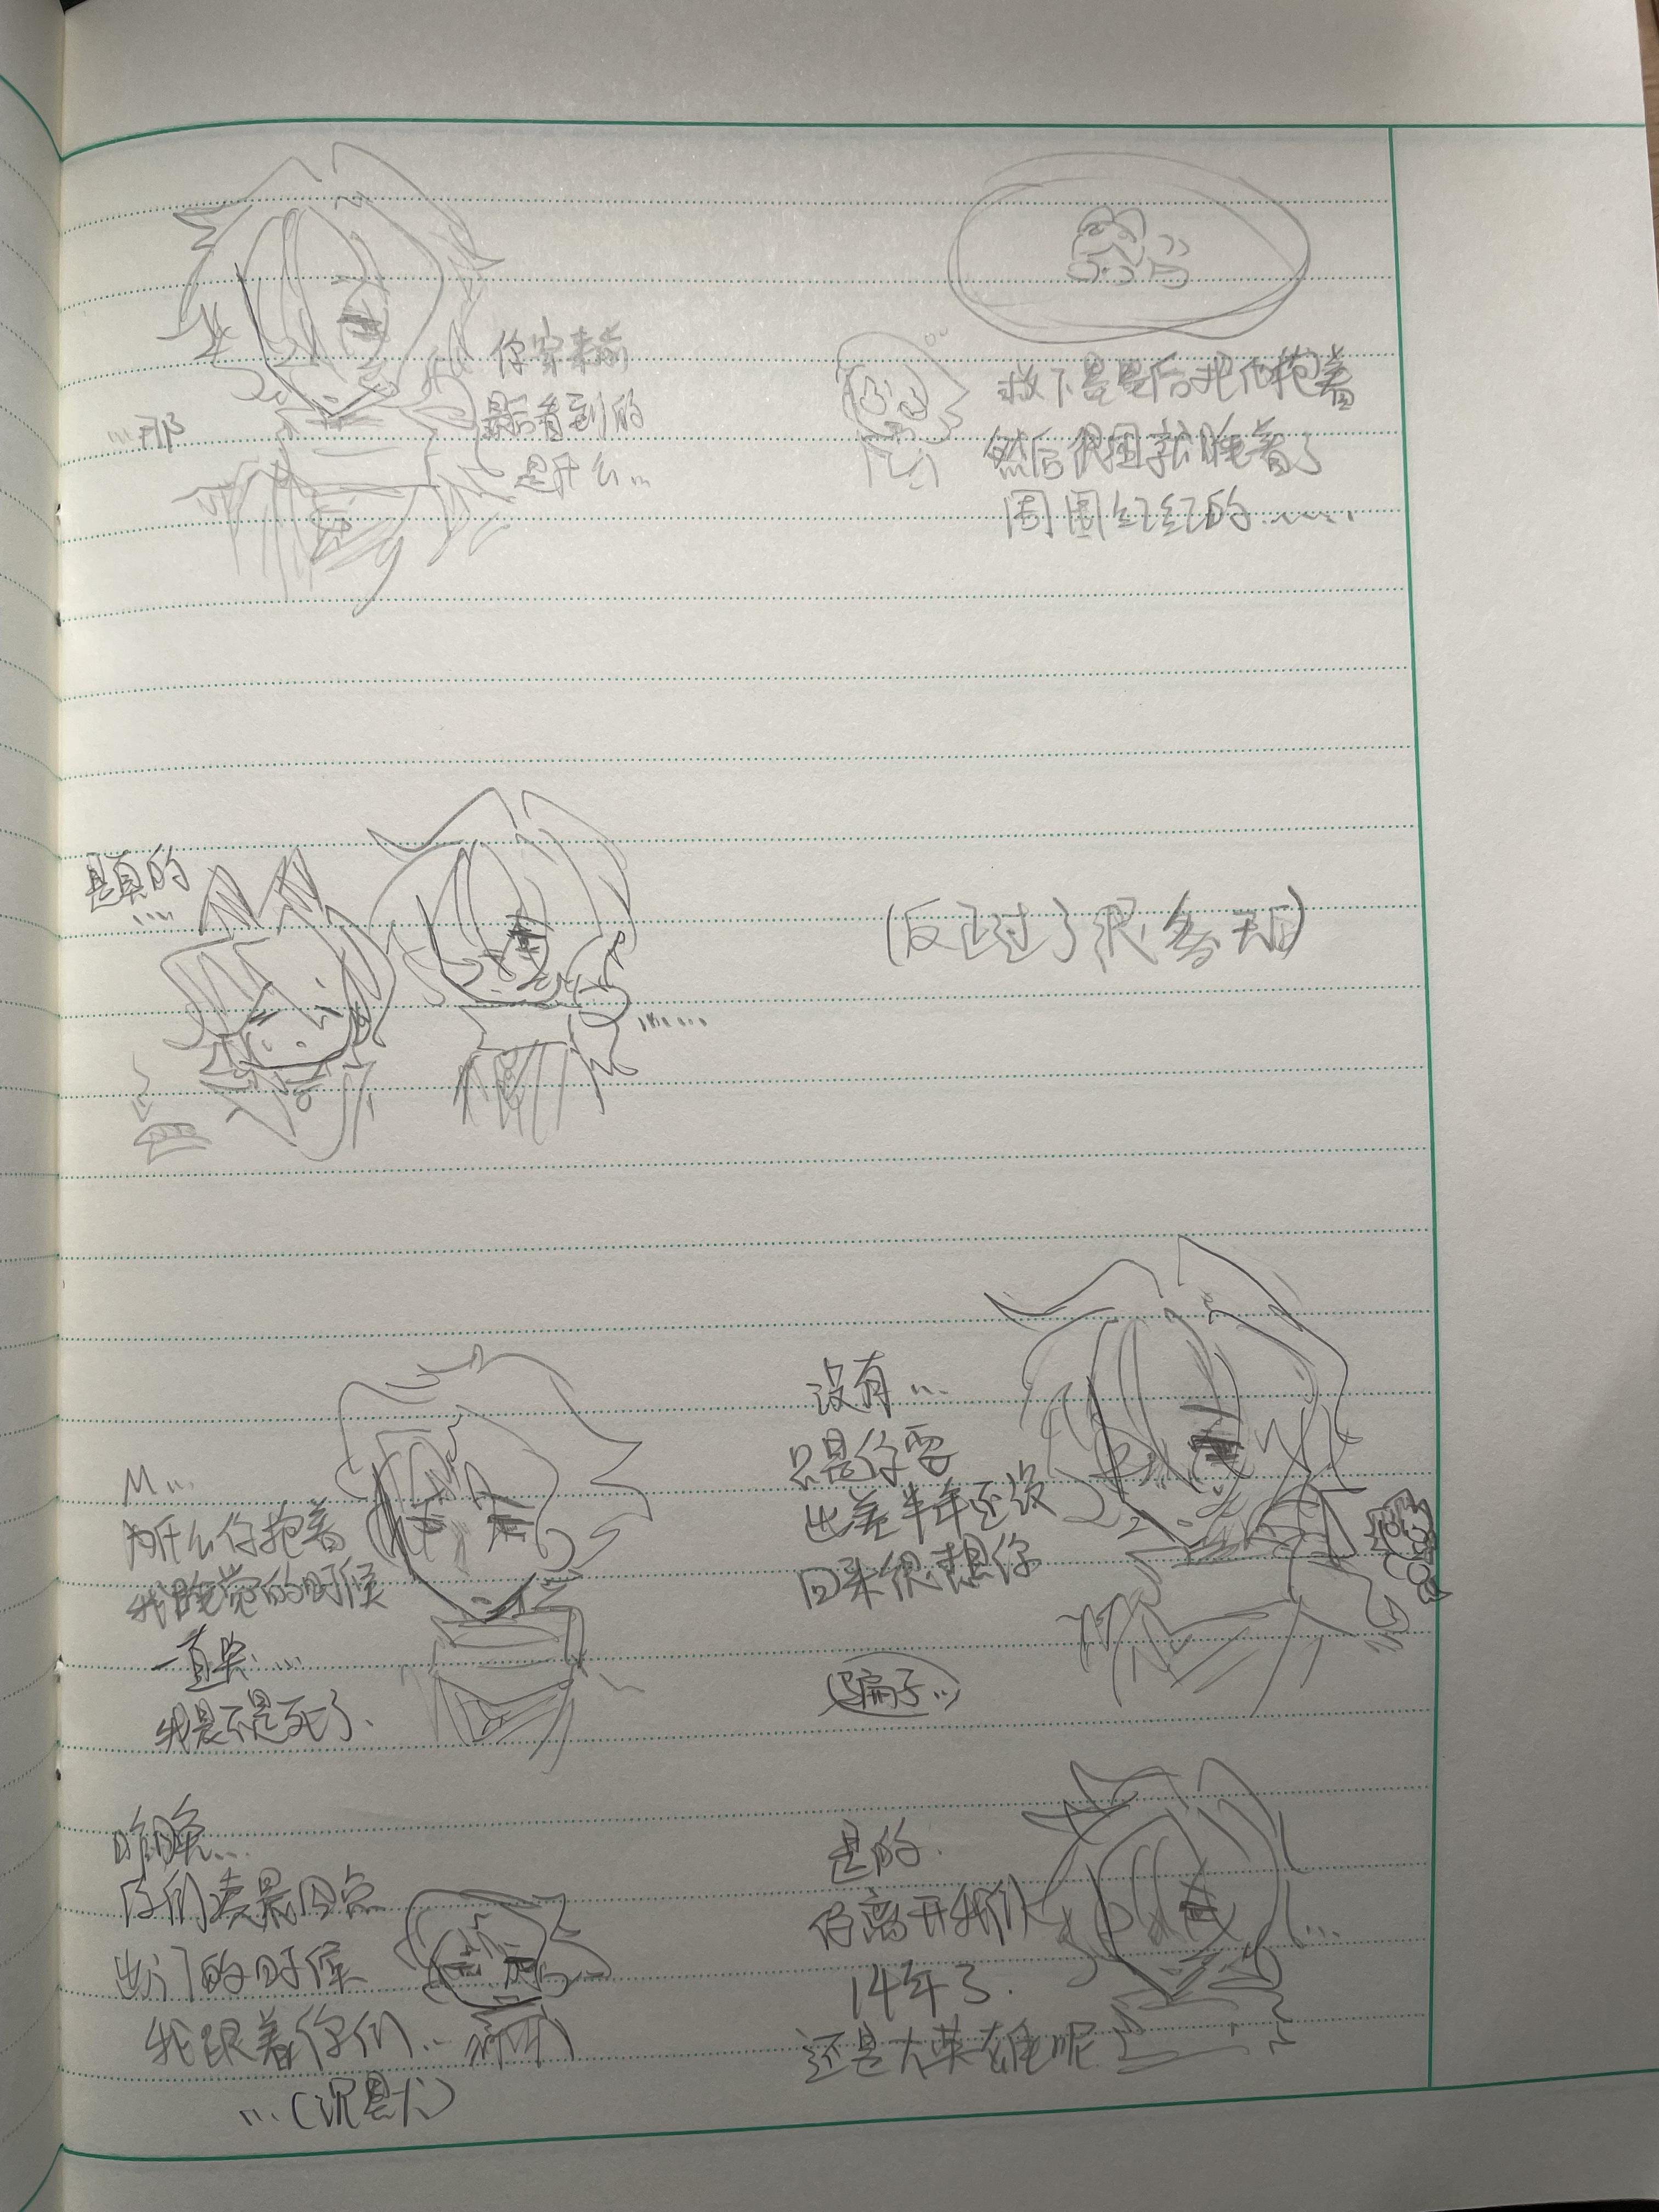 …那
你穿来前
最后看到的
是什么…
救下昱昱后把他抱着
然后很困就睡着了
周围红红的……
真的
…
……
(反正过了很多天后)
M…
为什么你抱着
我睡觉的时候
一直哭…
我是不是死了.
没有…
只是你要
出差半年还没
回来很想你
骗子…
昨晚…
你们凌晨四点
出门的时候
我跟着你们…
…(沉默)
是的.
你离开我们
14年了.
还是大英雄呢
…